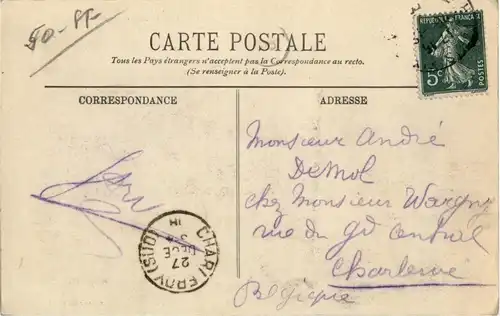 CARTE POSTALE
Tous les Pays étrangers n'acceptent pas la Correspondance au recto.
(Se renseigner à la Poste).
CORRESPONDANCE
ADRESSE
RÉPUBLIQUE FRANÇAISE
5c
POSTES
Monsieur André
Demol
chez Monsieur
rue du Gd Central
Charleroi
Belgique
CHARLEROY (SUD)
27